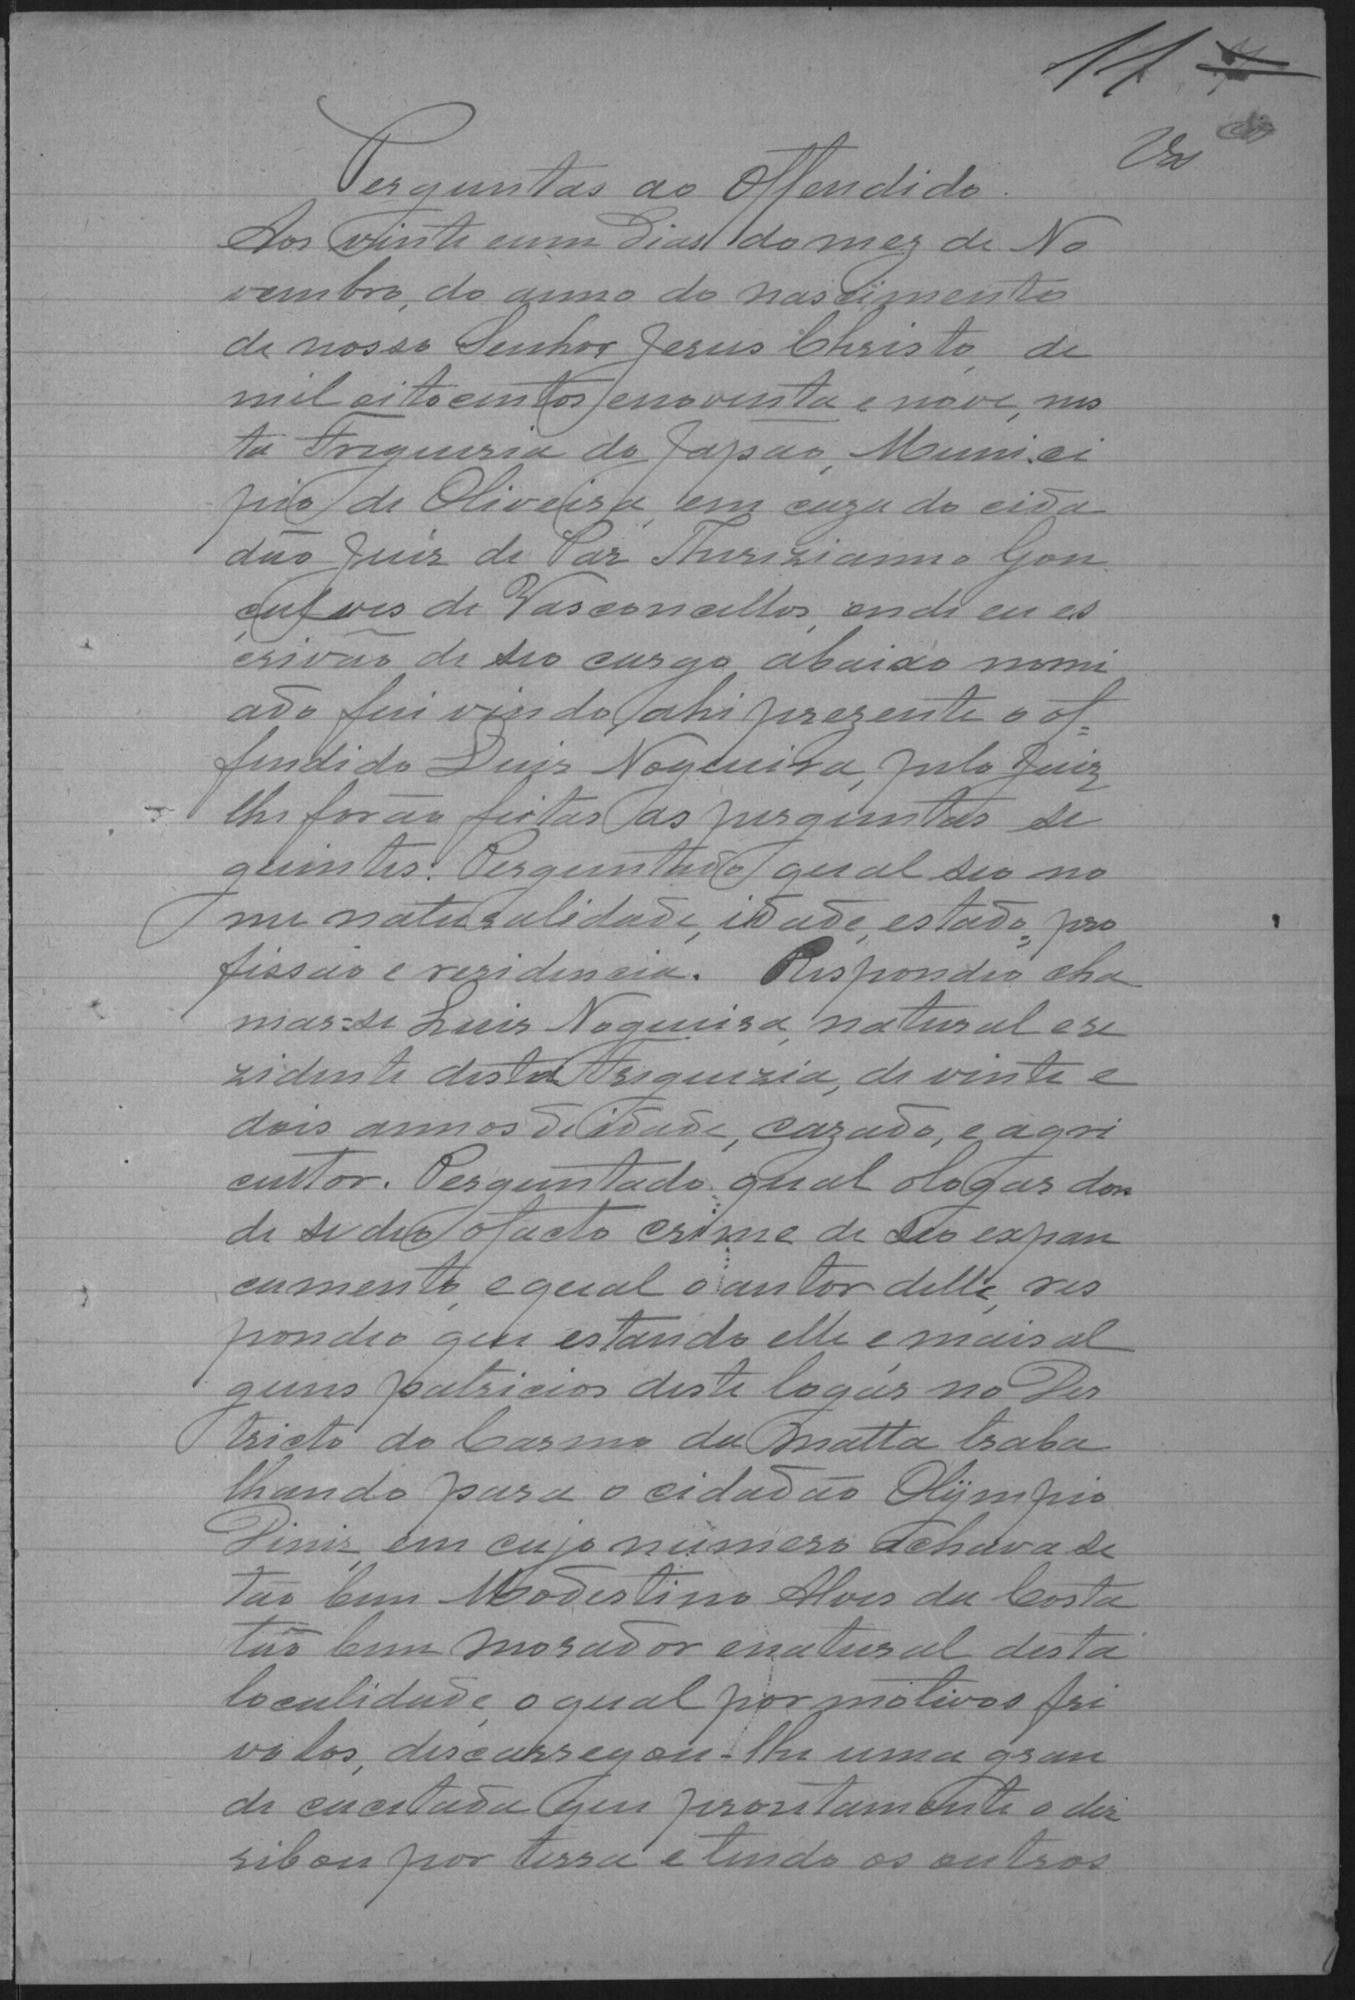 11
Perguntas ao Offendido.
Aos vinte eum Dias do mez de No
vembro, do anno do nascimento
de nosso Senhor Jesus Christo, de
mil oitocentos enoventa e nove, nes
ta Freguezia do Japão, Munici
pio de Oliveira, em caza do cida
dão Juiz de Paz Thursianno Gon
çalves de Vasconcellos, onde eu es
crivão de seo cargo, abaixo nomi
ado fui vindo, ahi prezente o of=
fendido Luis Nogueira, pelo Juiz
lhe forão feitas as perguntas se
guintes: Perguntado qual seo no
me naturalidade, idade, estado, pro
fissão e rezidencia. Respondeo cha
mar=se Luis Nogueira, natural ere
zidente desta Freguezia, de vinte e
dois annos de idade, cazado, e agri
cultor. Perguntado qual o logar don
de se deo o facto crime de seo espan
camento, e qual o autor delle, res
pondeo que estando elle e mais al
guns patricios deste logar no Des
tricto do Carmo da Matta traba
lhando para o cidadão Olÿmpio
Diniz, em cujo numero achava se
tão bem Modestino Alves da Costa
tão bem morador enatural desta
localidade, o qual por motivos fri
volos, descarregou-lhe uma gran
de cacetada que prontamente o der
ribou por terra e tendo os outros